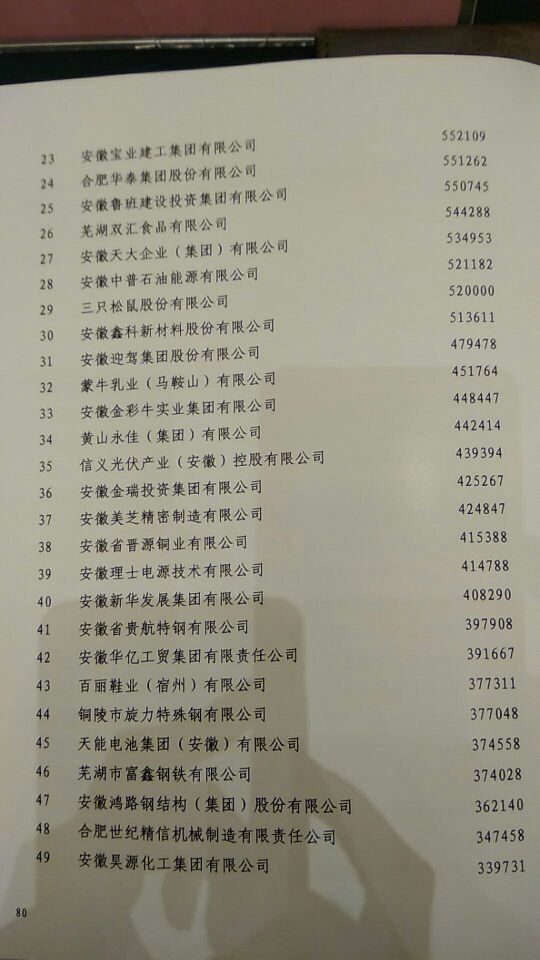 23 安徽宝业建工集团有限公司 552109
24 合肥华泰集团股份有限公司 551262
25 安徽鲁班建设投资集团有限公司 550745
26 芜湖双汇食品有限公司 544288
27 安徽天大企业（集团）有限公司 534953
28 安徽中普石油能源有限公司 521182
29 三只松鼠股份有限公司 520000
30 安徽鑫科新材料股份有限公司 513611
31 安徽迎驾集团股份有限公司 479478
32 蒙牛乳业（马鞍山）有限公司 451764
33 安徽金彩牛实业集团有限公司 448447
34 黄山永佳（集团）有限公司 442414
35 信义光伏产业（安徽）控股有限公司 439394
36 安徽金瑞投资集团有限公司 425267
37 安徽美芝精密制造有限公司 424847
38 安徽省晋源铜业有限公司 415388
39 安徽理士电源技术有限公司 414788
40 安徽新华发展集团有限公司 408290
41 安徽省贵航特钢有限公司 397908
42 安徽华亿工贸集团有限责任公司 391667
43 百丽鞋业（宿州）有限公司 377311
44 铜陵市旋力特殊钢有限公司 377048
45 天能电池集团（安徽）有限公司 374558
46 芜湖市富鑫钢铁有限公司 374028
47 安徽鸿路钢结构（集团）股份有限公司 362140
48 合肥世纪精信机械制造有限责任公司 347458
49 安徽昊源化工集团有限公司 339731
80